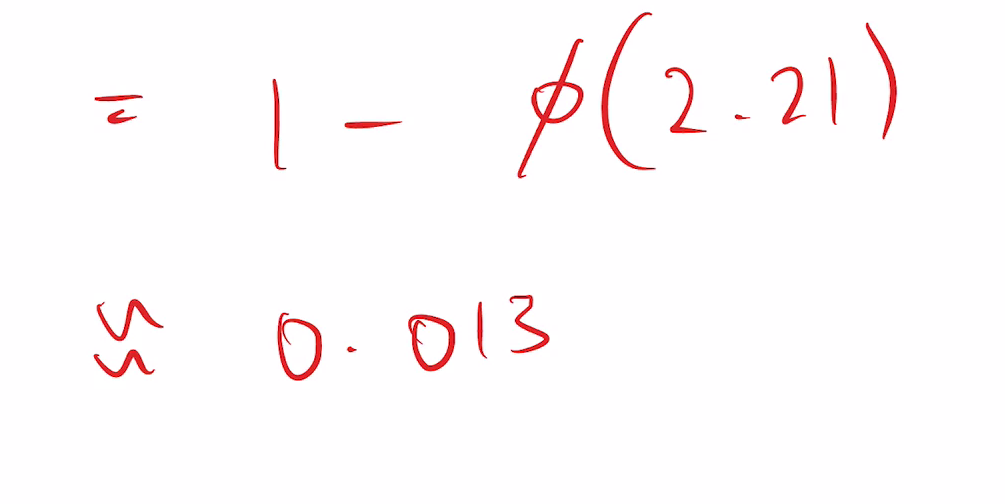 = 1 - ϕ(2.21)
≈ 0.013